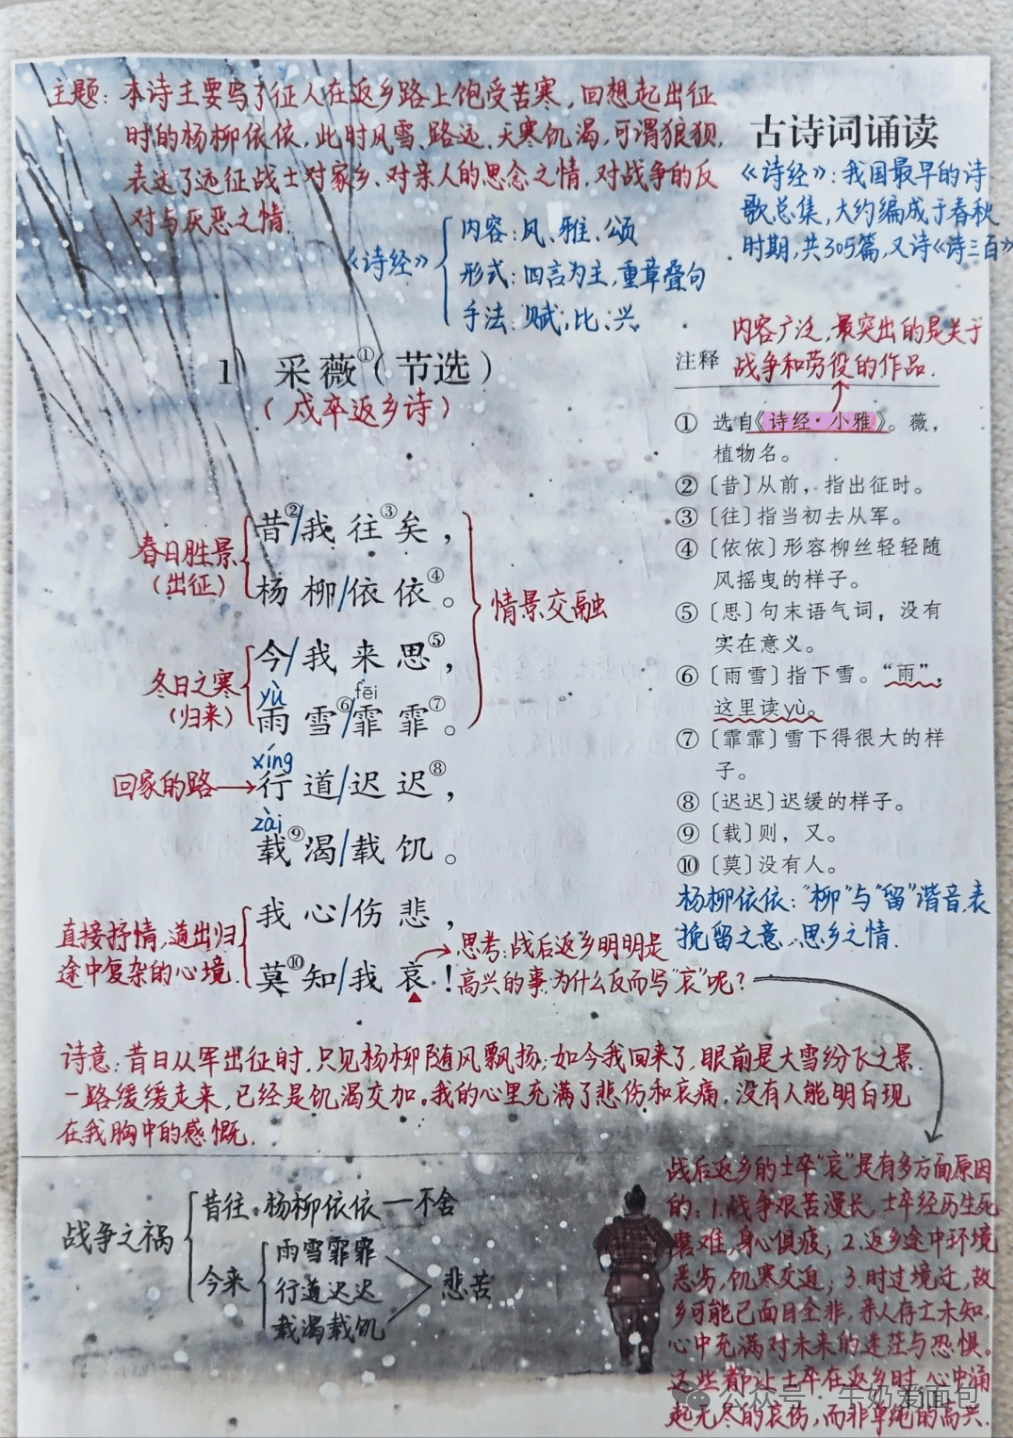 主题：本诗主要写了征人在返乡路上饱受苦寒，回想起出征
时的杨柳依依，此时风雪、路远、天寒饥渴，可谓狼狈，
表达了远征战士对家乡、对亲人的思念之情，对战争的反
对与厌恶之情.
古诗词诵读
《诗经》：我国最早的诗
歌总集，大约编成于春秋
时期，共305篇，又诗《诗三百》
《诗经》
内容：风、雅、颂
形式：四言为主，重章叠句
手法：赋、比、兴
1 采薇①（节选）
（戍卒返乡诗）
春日胜景
（出征）
昔②/我往③矣，
杨柳/依依④。
冬日之寒
（归来）
今/我来思⑤，
yù
fēi
雨雪⑥/霏霏⑦。
情景交融
xíng
回家的路
行道/迟迟⑧，
zài
载⑨渴/载饥。
直接抒情，道出归
途中复杂的心境.
我心/伤悲，
莫⑩知/我哀！
思考：战后返乡明明是
高兴的事，为什么反而写“哀”呢？
内容广泛，最突出的是关于
战争和劳役的作品.
注释
① 选自《诗经·小雅》。薇，
植物名。
② 〔昔〕从前，指出征时。
③ 〔往〕指当初去从军。
④ 〔依依〕形容柳丝轻轻随
风摇曳的样子。
⑤ 〔思〕句末语气词，没有
实在意义。
⑥ 〔雨雪〕指下雪。“雨”，
这里读yù。
⑦ 〔霏霏〕雪下得很大的样
子。
⑧ 〔迟迟〕迟缓的样子。
⑨ 〔载〕则，又。
⑩ 〔莫〕没有人。
杨柳依依：“柳”与“留”谐音，表
挽留之意、思乡之情.
诗意：昔日从军出征时，只见杨柳随风飘扬；如今我回来了，眼前是大雪纷飞之景.
一路缓缓走来，已经是饥渴交加。我的心里充满了悲伤和哀痛，没有人能明白现
在我胸中的感慨.
战争之祸
昔往：杨柳依依—不舍
今来
雨雪霏霏
行道迟迟
载渴载饥
悲苦
战后返乡的士卒“哀”是有多方面原因
的：1.战争艰苦漫长，士卒经历生死
磨难，身心俱疲；2.返乡途中环境
恶劣，饥寒交迫；3.时过境迁，故
乡可能已面目全非，亲人存亡未知，
心中充满对未来的迷茫与恐惧。
这些都让士卒在返乡时，心中涌
起无尽的哀伤，而非单纯的高兴.
公众号·牛奶爱面包